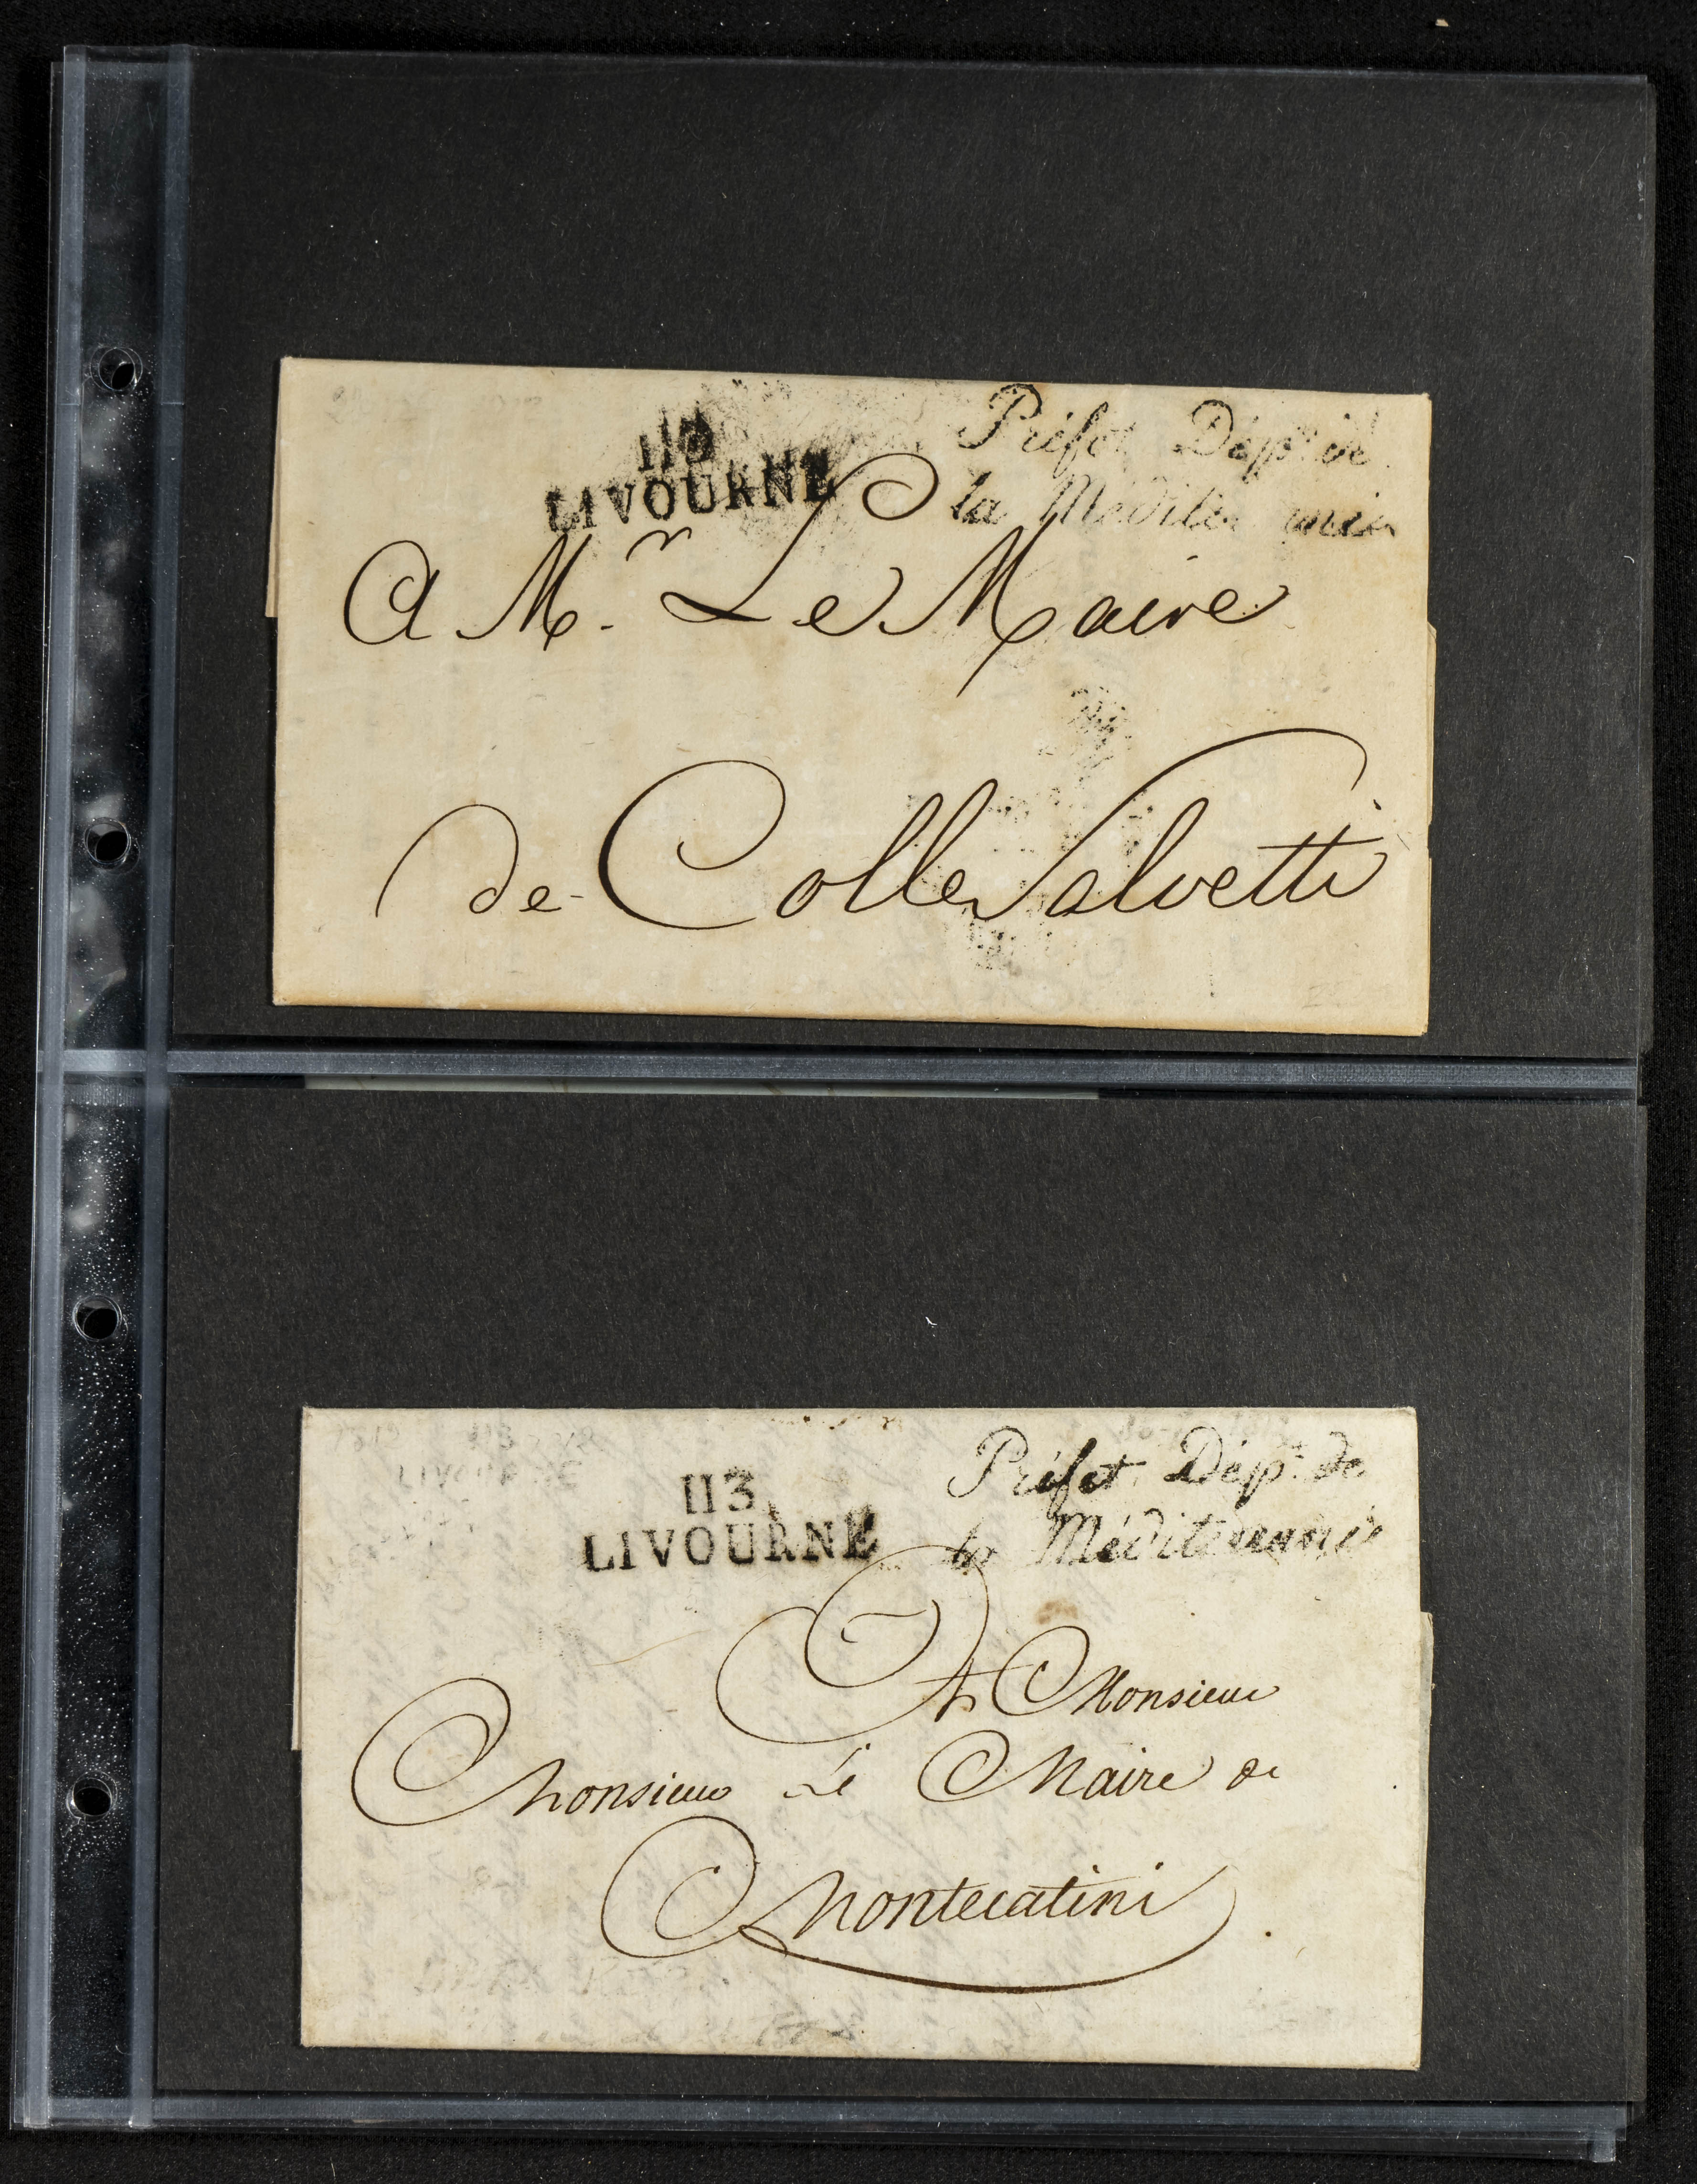 113
LIVOURNE
Préfet Dépt. de
la Méditerranée
A Mr. Le Maire
de Colle Salvetti
113
LIVOURNE
Préfet Dépt. de
la Méditerranée
A Monsieur
Monsieur Le Maire de
Montecatini